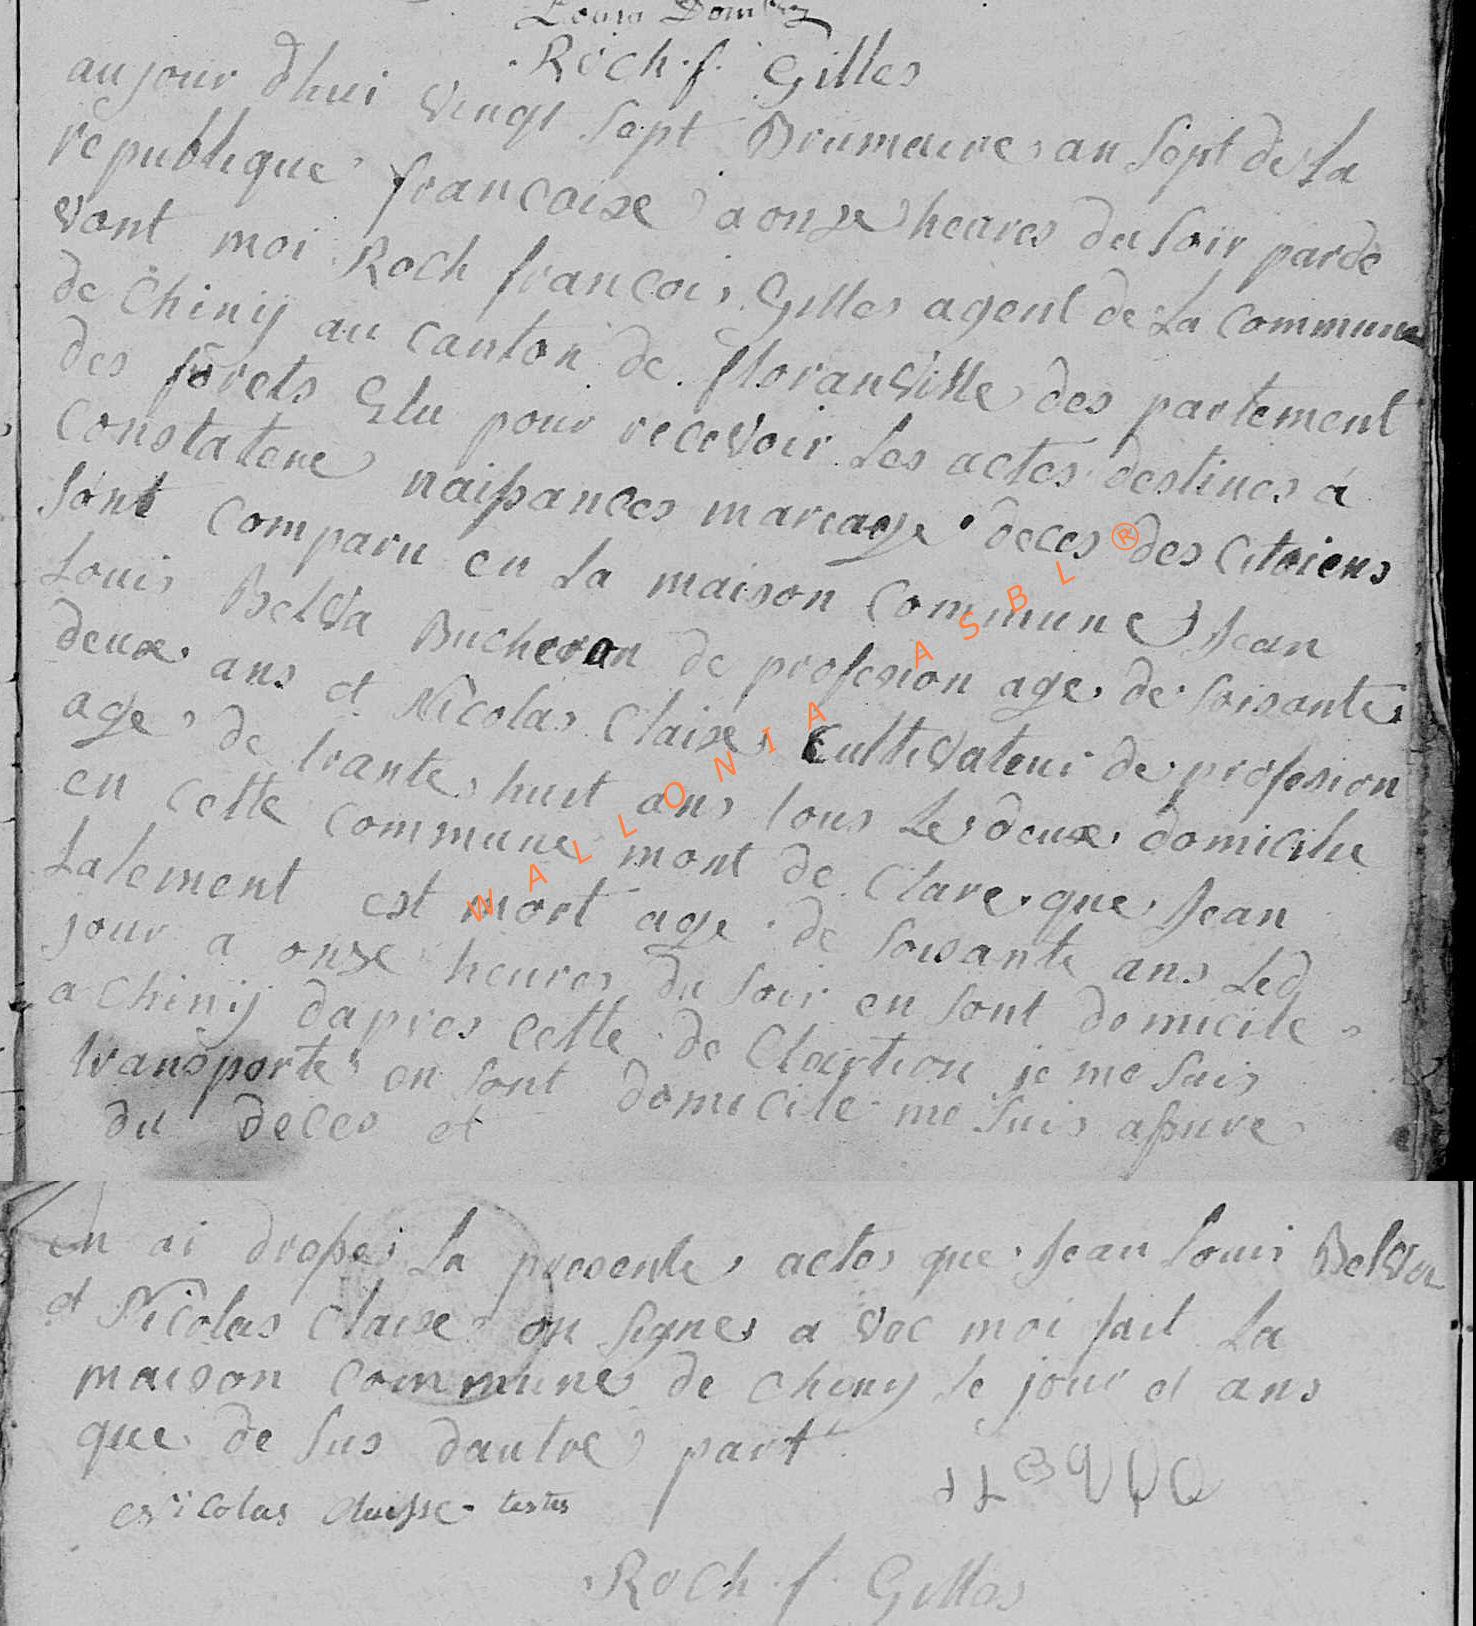 Louis Dom
Roch. f. Gilles
aujour dhui vingt sept Brumaire an sept de la
republique francaise a onze heures du soir parde
vant moi Roch francois Gilles agent de la commune
de Chiny au canton de floranville des partement
des forets Elu pour recevoir les actes destines a
constatere naissances mariage deces des Citoiens
sont comparu en la maison commune Jean
Louis Belva Bucheron de profesion age de soisante
deux ans et Nicolas Claise Cultivateur de profesion
age de trante huit ans tous les deux domicilie
en cette commune mont de Clare que Jean
Lalement est mort age de soisante ans led
jour a onze heures du soir en sont domicile
a Chiny dapres cette de Clartion je me suis
transporte en sont domicile me suis assure
du deces et
en ai dresse la presente actes que Jean Louis Belva
et Nicolas Claise on signe a vec moi fait la
maison commune de chiny le jour et ans
que de sus dautre part
Nicolas claisse testes
Roch. f. Gilles
WALLONIA ASBL ®